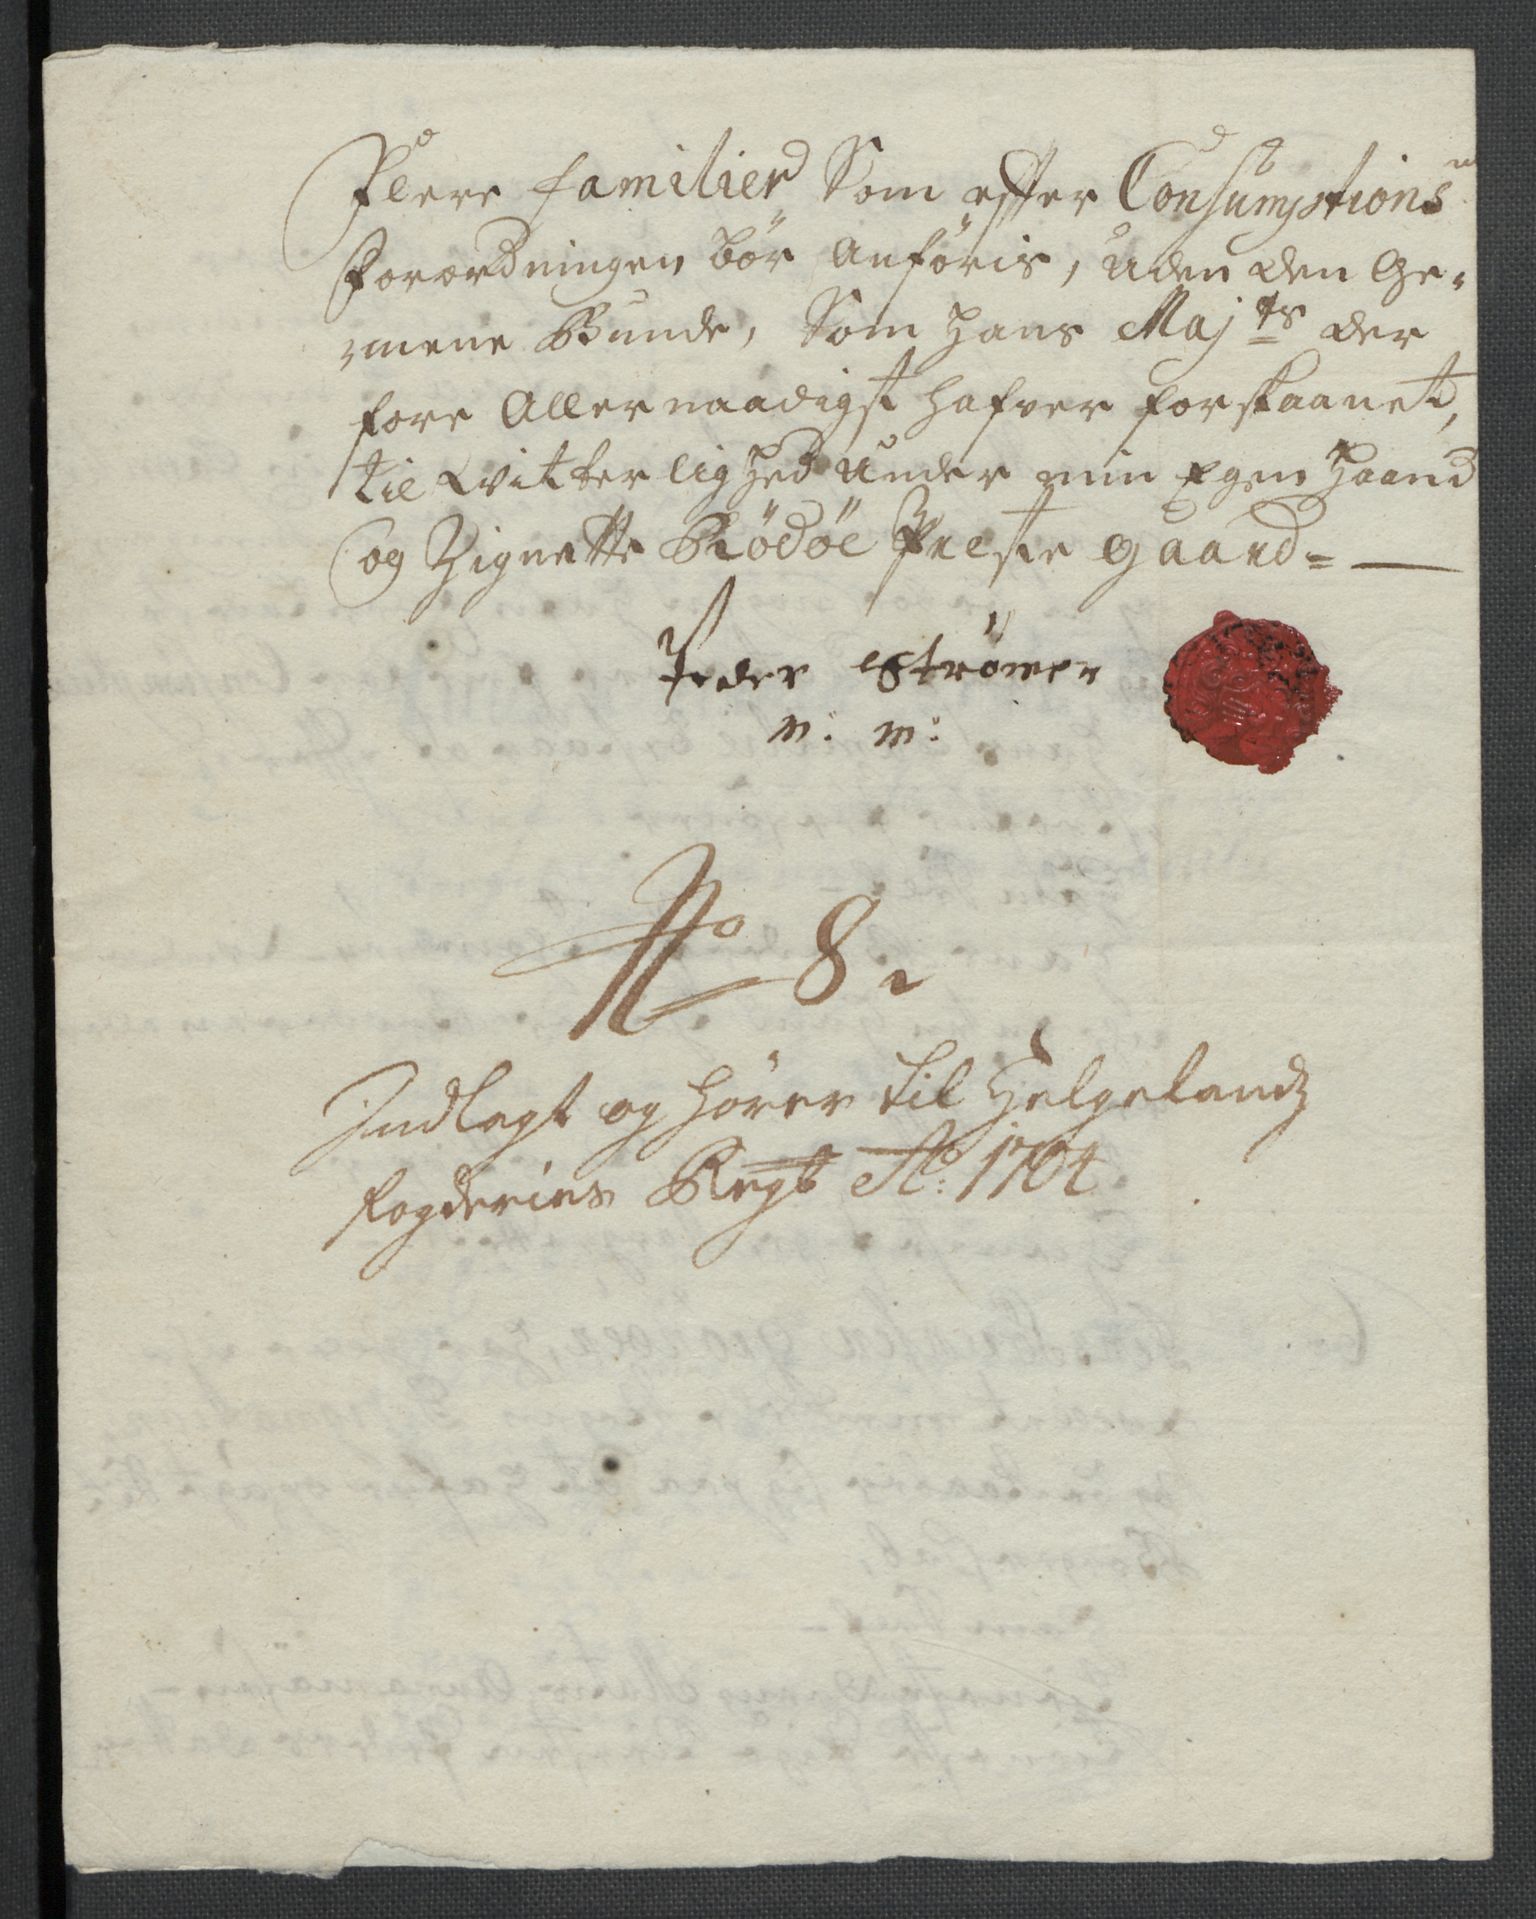 Flere familier Som effter Consumptions
Forordningen bör Anföris, uden den Ge-
mene Bunde, Som Hans Maj:ts der
fore Allernaadigst hafver forskaanet,
til Witterlighed under min Egen Haand
og Zignette Rödöe Preste gaard=
Peder Strömer
m: m:
No 8.
Indlagt og hörer til Helgelandz
fogderies Regb Ao: 1704